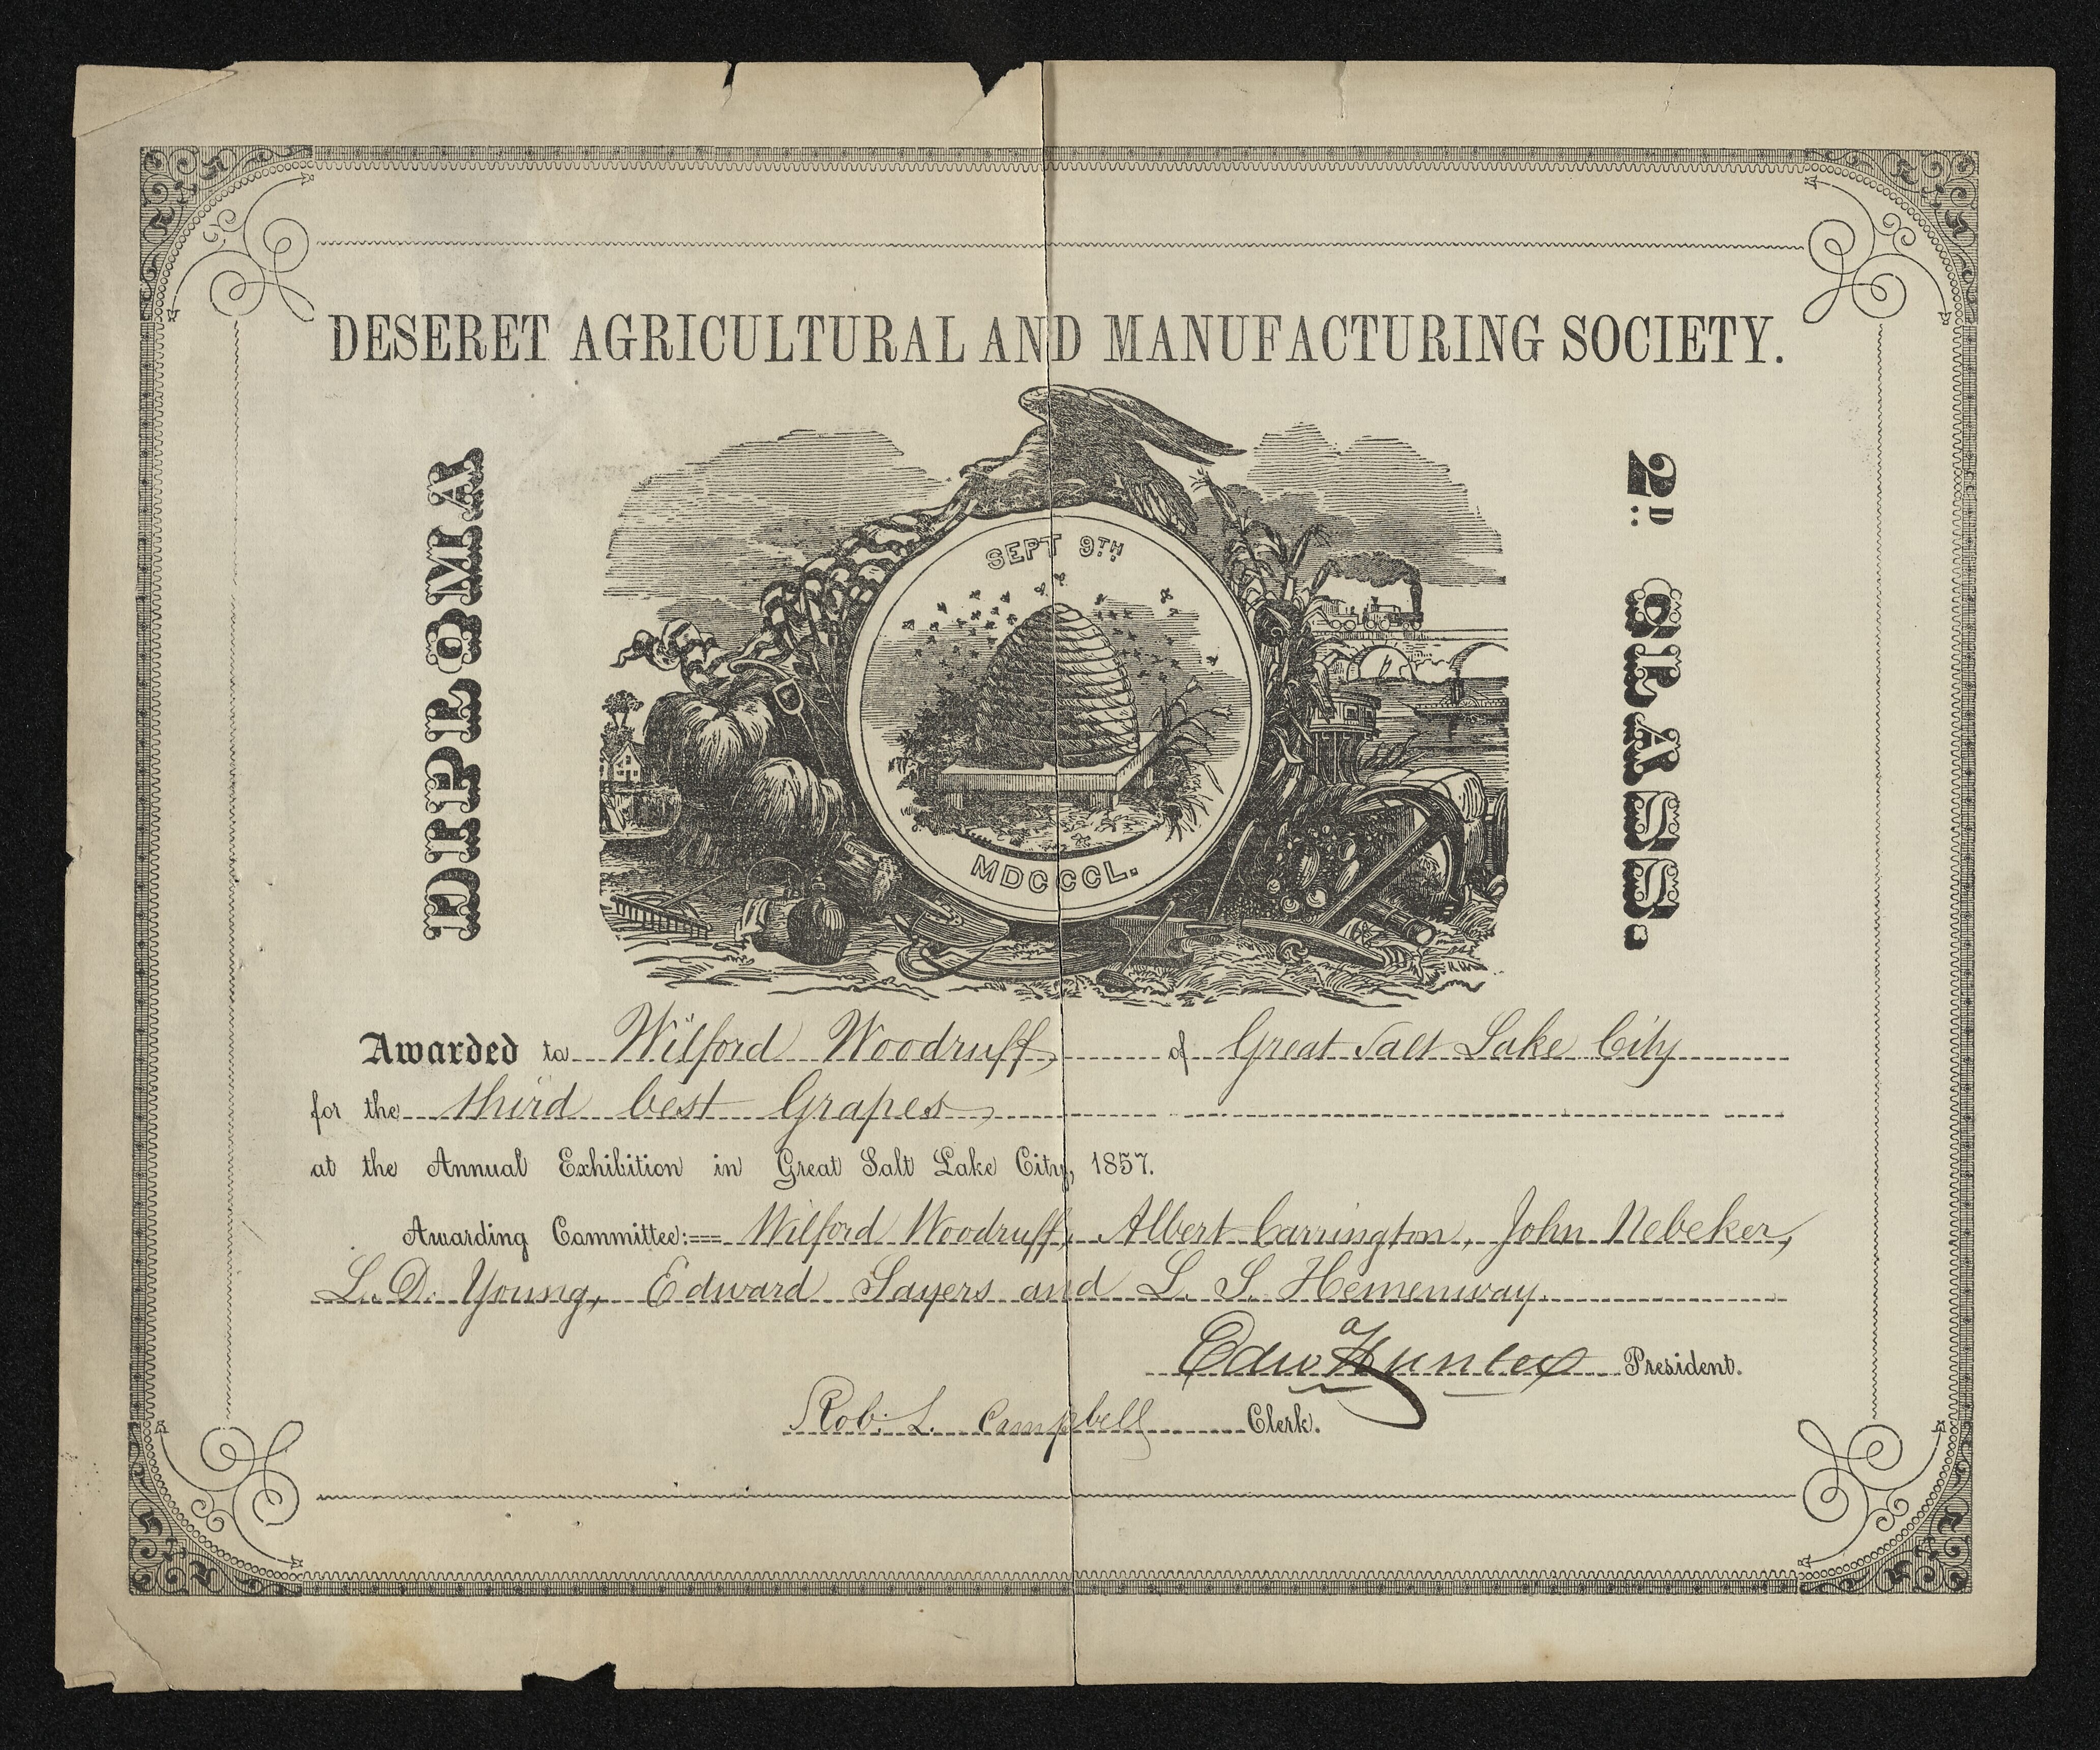 DESERET AGRICULTURAL AND MANUFACTURING SOCIETY.
DIPLOMA
2D. CLASS.
SEPT 9TH
MDCCCL.
Awarded to Wilford Woodruff, of Great Salt Lake City
for the third best Grapes,
at the Annual Exhibition in Great Salt Lake City, 1857.
Awarding Committee:== Wilford Woodruff, Albert Carrington, John Nebeker,
L. D. Young, Edward Sayers and L. S. Hemenway.
Edwa Hunter President.
Rob. L. Campbell Clerk.